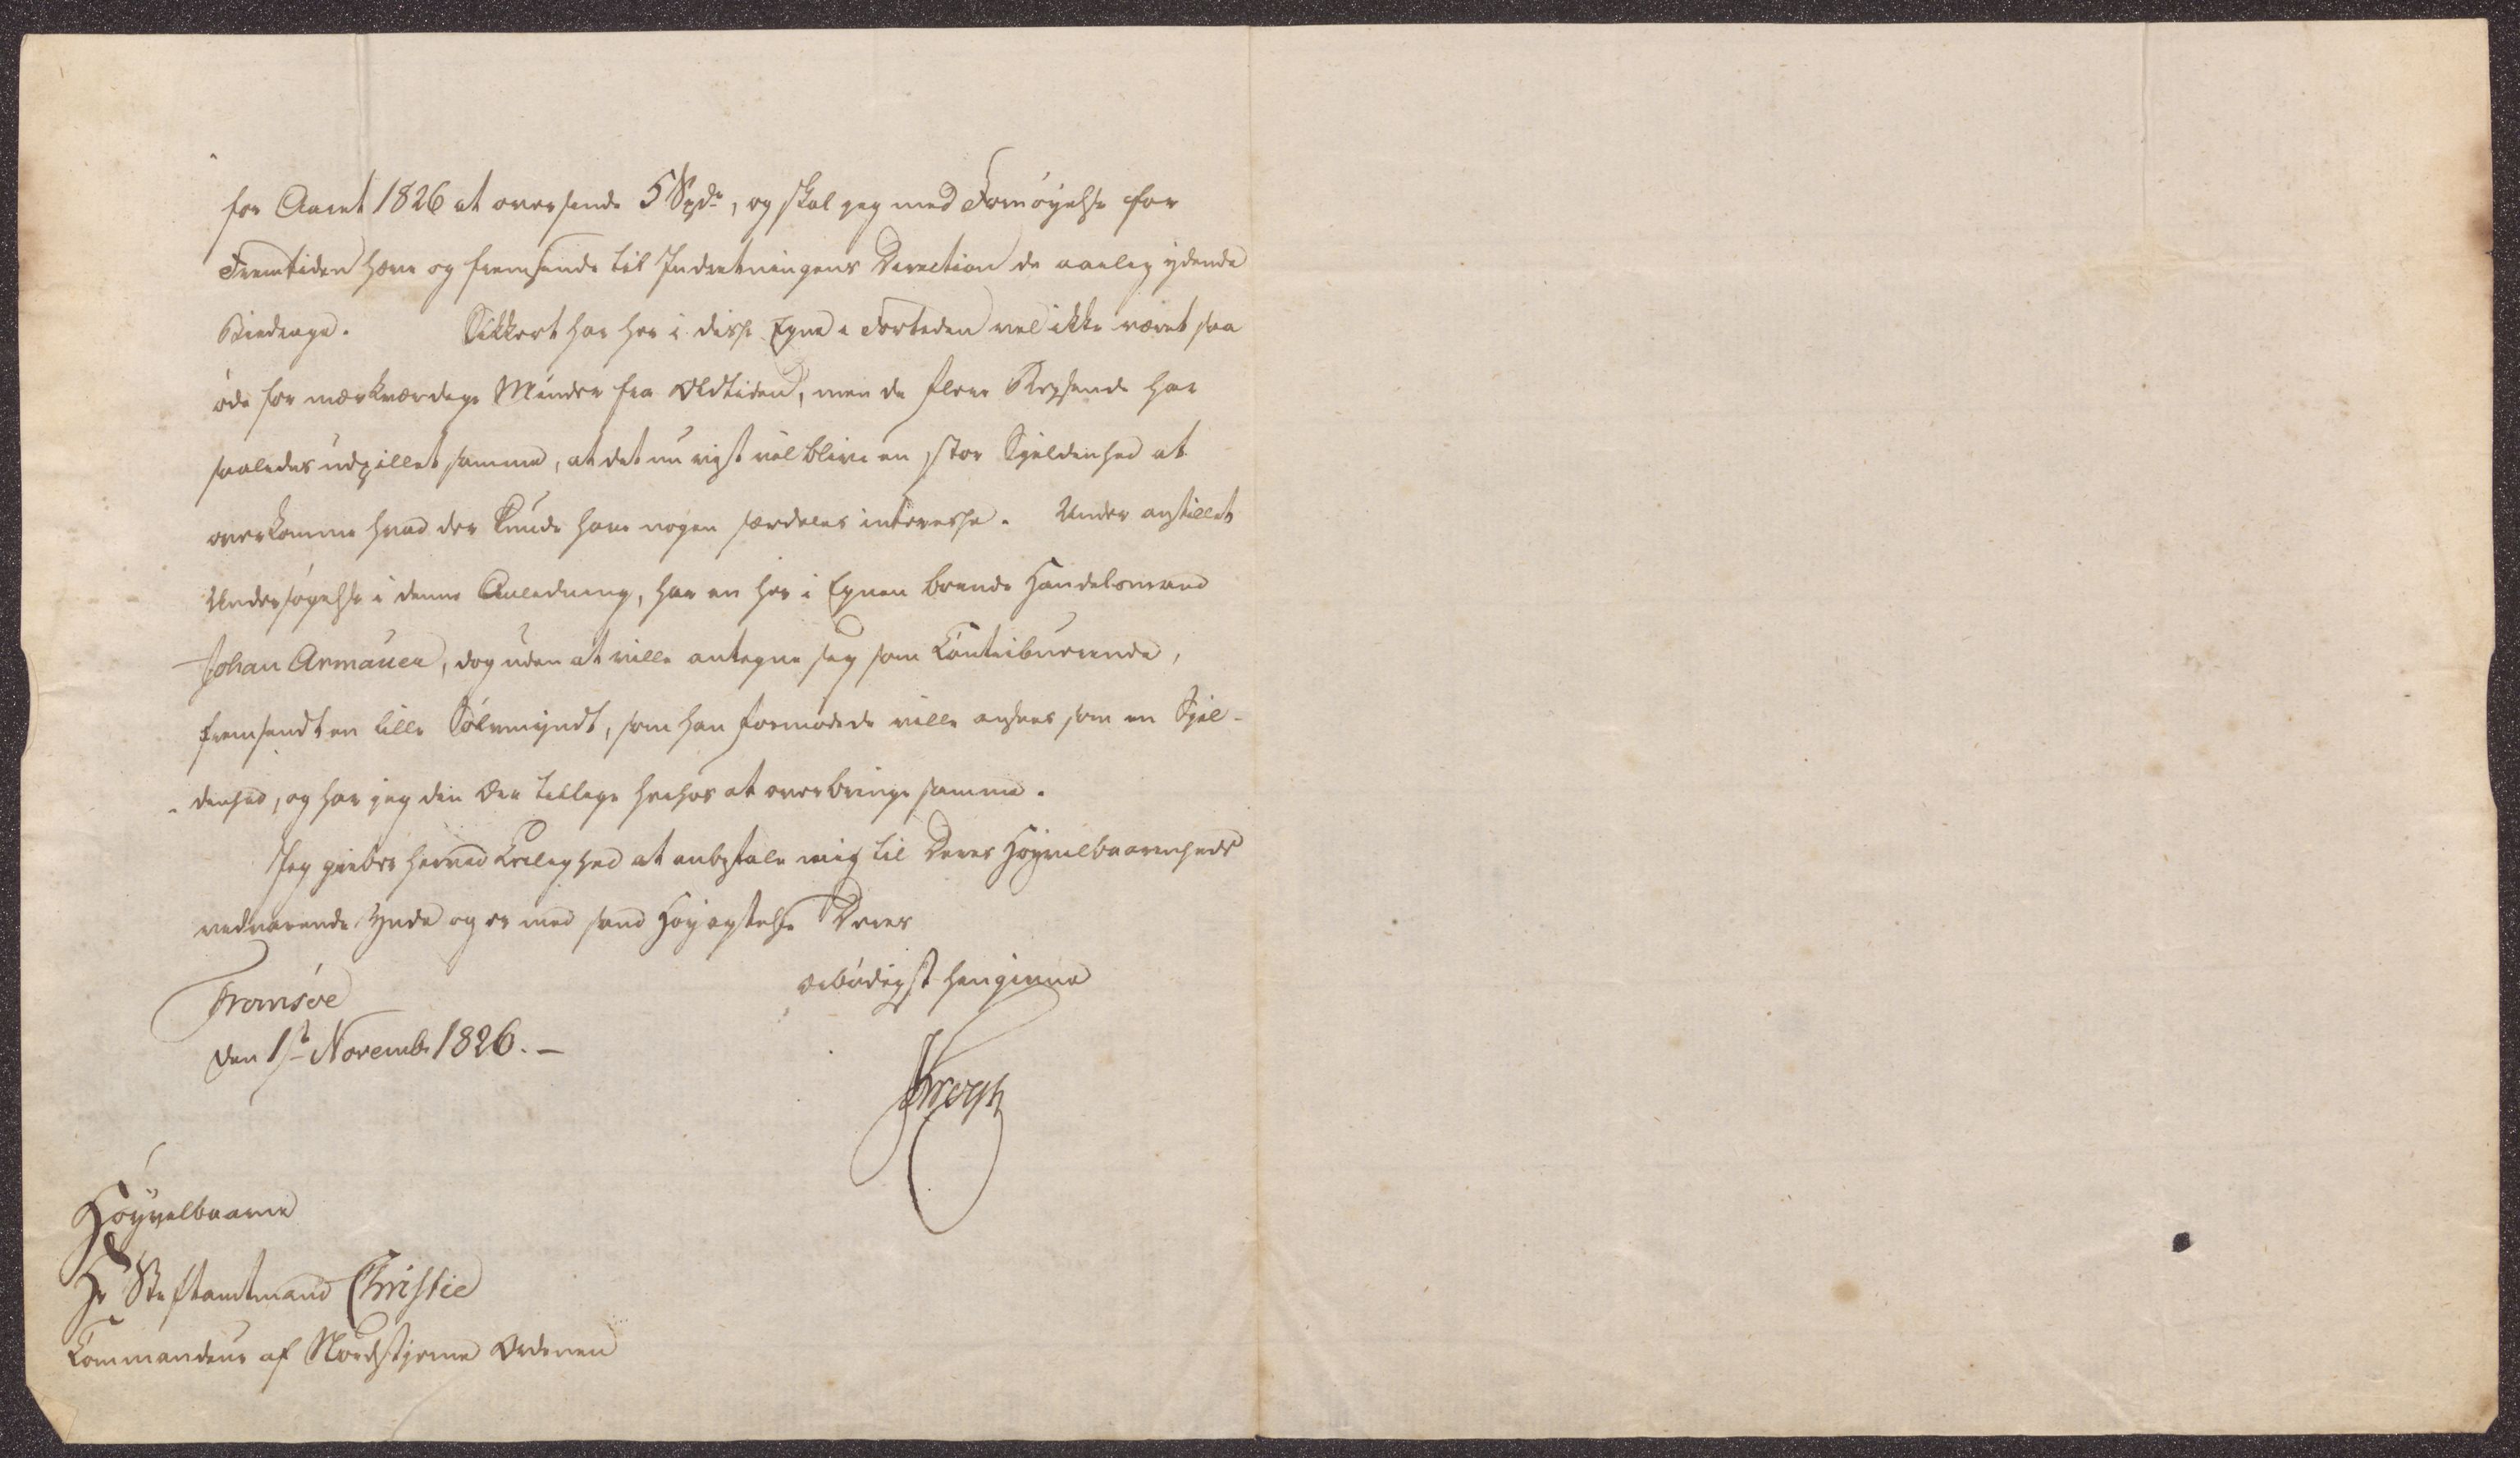 for Aaret 1826 at oversende 5 Spd., og skal jeg med Fornöyelse for
Fremtiden hæve og fremsende til Indretningens Direction de aarlig ydende
Bidrage. Sikkert har her i disse Egne i Fortiden vel ikke været saa
öde for mærkværdige Minder fra Oldtiden, men de flere Reysende har
saaledes udpillet samme, at det nu vist vil blive en stor Sjeldenhed at
overkomme hvad der kunde have nogen særdeles interesse. Under anstillet
Undersögelse i denne Anledning, har en her i Egnen boende Handelsmand
Johan Armauer, dog uden at ville antegne sig som Contribuerende,
fremsendt en lille Sölvmyndt, som han formodede ville ansees som en Sjel-
-denhed, og har jeg den Ære tillige hrhos at overbringe samme.
Jeg griber herved Leilighed at anbefale mig til Deres Höyvelbaarenheds
vedvarende Ynde og er med sand Höyagtelse Deres
Tromsöe
ærbödigst hengivne
den 1ste Novemb. 1826. -
Krogh
Höyvelbaarne
Hr Stiftamtmand Christie
Commandeur af Nordstjerne Ordenen